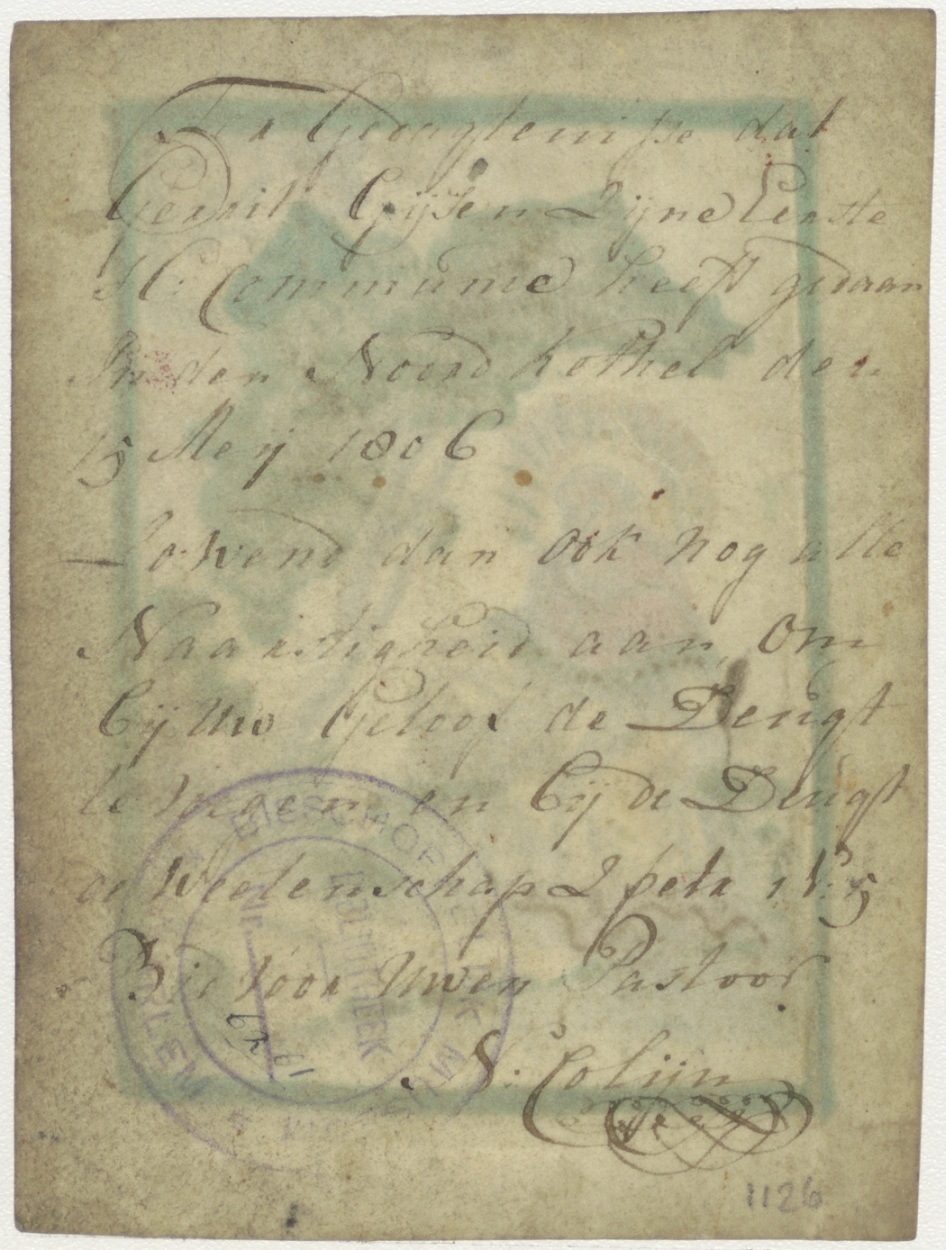 Ter Geheugtenisse dat
Gerrit Gijsen Zijne Eerste
H: Communie heeft gedaan
In den Noord hokkel den
15 Meij 1806
Wend dan ook nog alle
Naarstigheid aan, Om
bij Uw Geloof de Deugt
te voegen en bij de Deugt
de Weetenschap 2 petr 1 V: 5
Bid voor Uwen Pastoor
N: Colijn
BISSCHOPPELIJK MUSEUM HAARLEM
BIBLIOTHEEK
Nr
1126